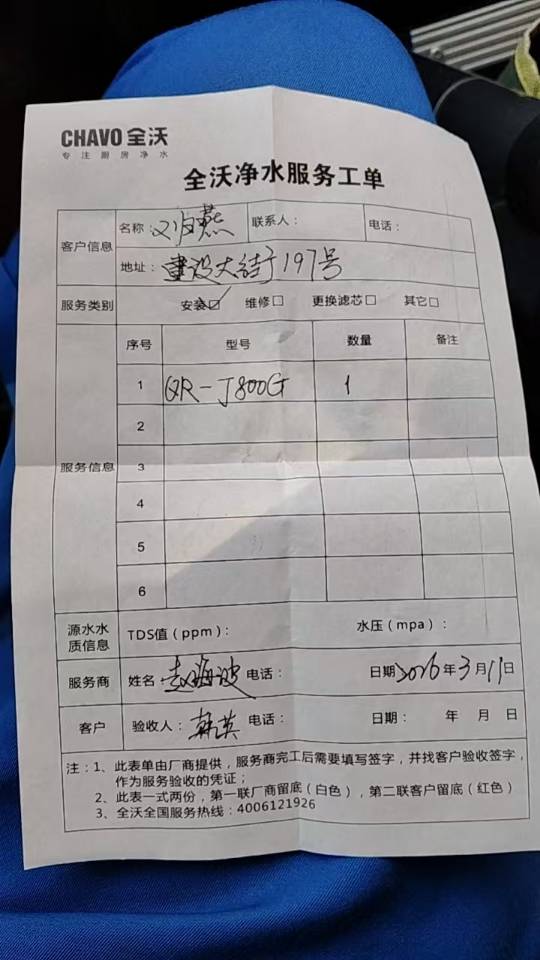 CHAVO 全沃
专注厨房净水
全沃净水服务工单
客户信息
名称：刘燕 联系人： 电话：
地址：建设大街197号
服务类别 安装☑ 维修□ 更换滤芯□ 其它□
服务信息
序号 型号 数量 备注
1 QR-J800G 1
2
3
4
5
6
源水水质信息 TDS值（ppm）： 水压（mpa）：
服务商 姓名 赵海波 电话： 日期 2026年3月11日
客户 验收人：韩英 电话： 日期： 年 月 日
注：1、此表单由厂商提供，服务商完工后需要填写签字，并找客户验收签字，
作为服务验收的凭证；
2、此表一式两份，第一联厂商留底（白色），第二联客户留底（红色）
3、全沃全国服务热线：4006121926